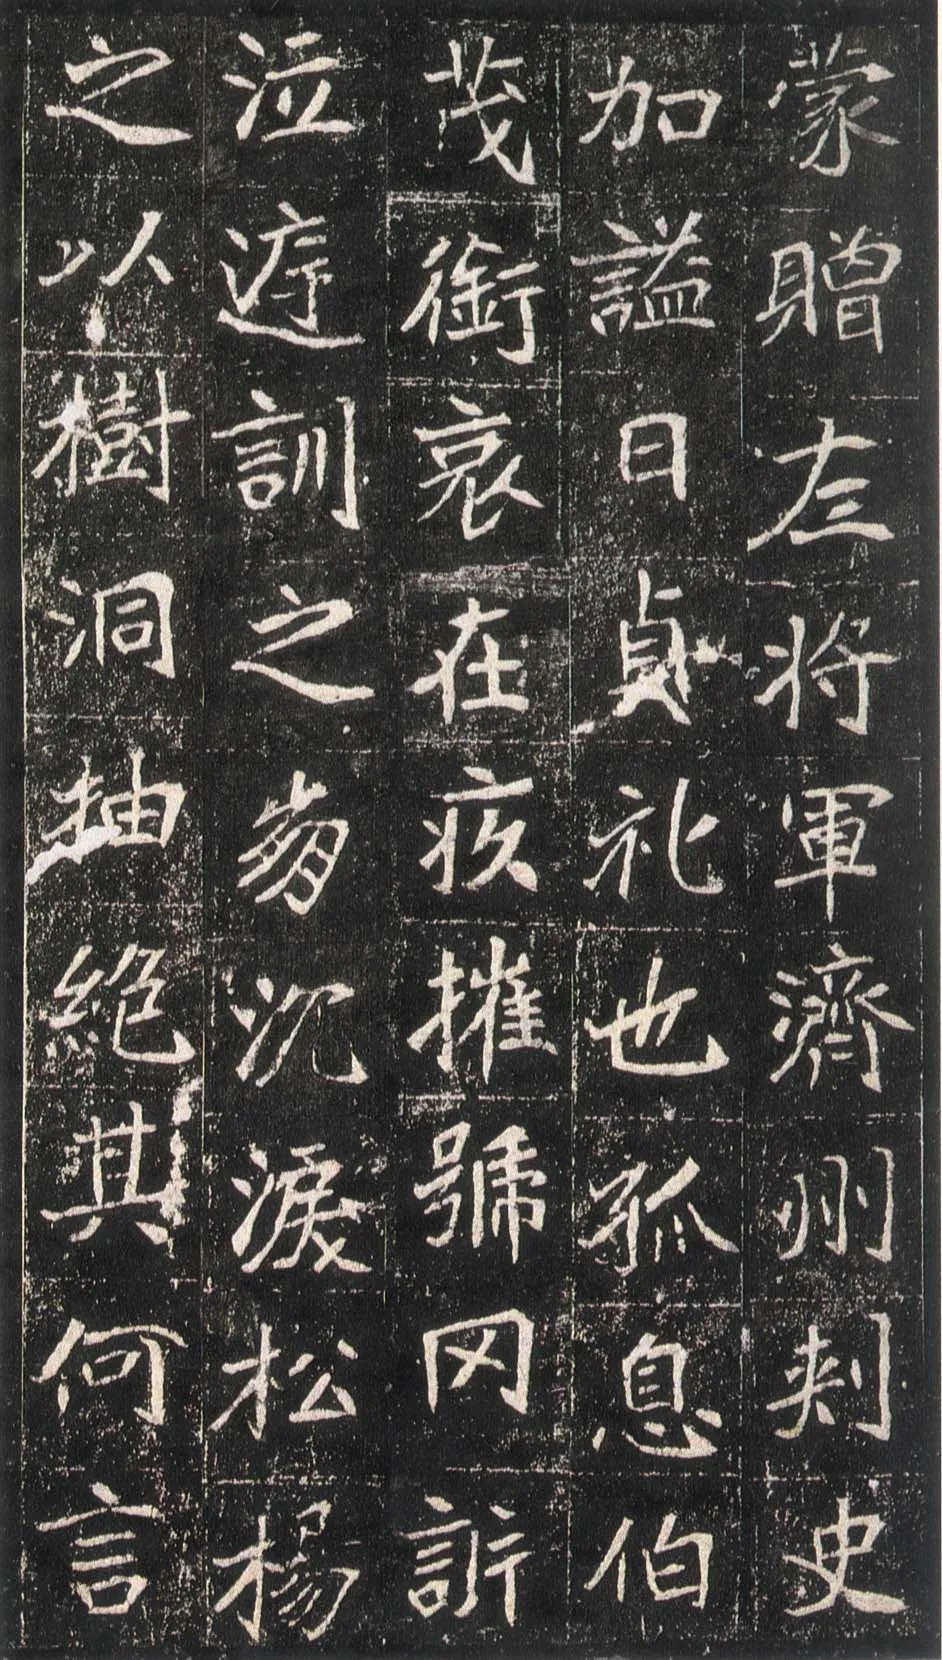 蒙贈左將軍濟州刾史
加謚曰貞礼也孤息伯
茂銜哀在疚摧號罔訴
泣庭訓之崩沉淚松楊
之以樹洞抽絕其何言